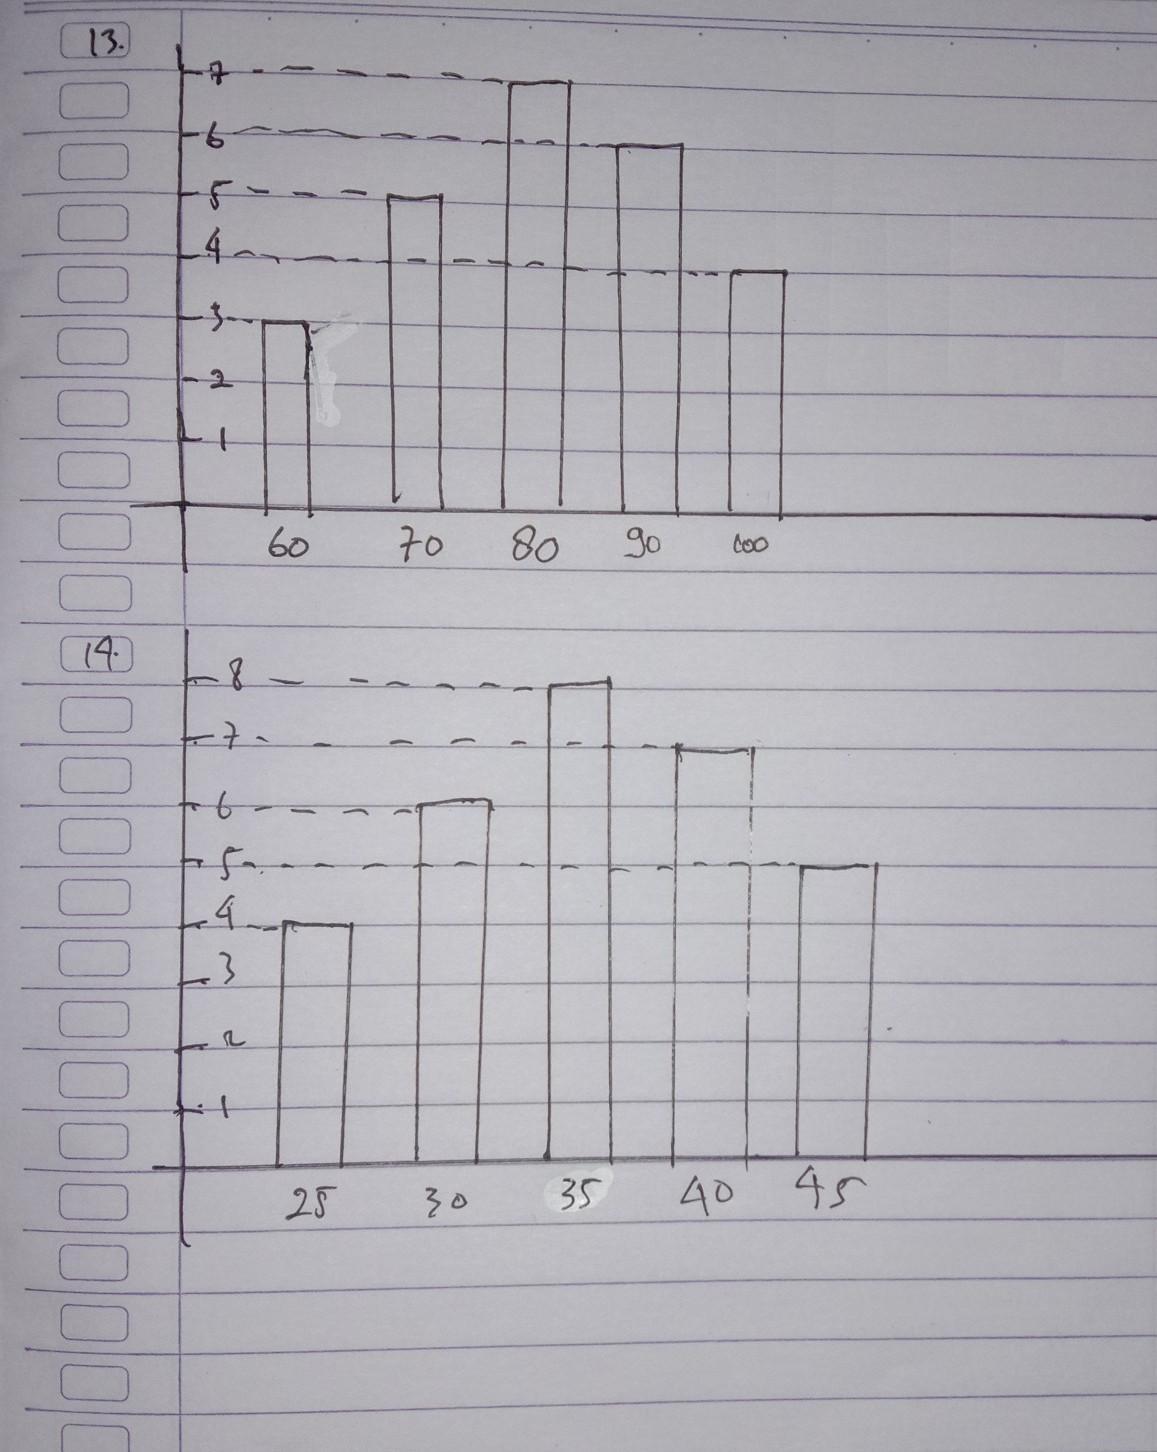 13.
7
6
5
4
3
2
1
60 70 80 90 100
14.
8
7
6
5
4
3
2
1
25 30 35 40 45